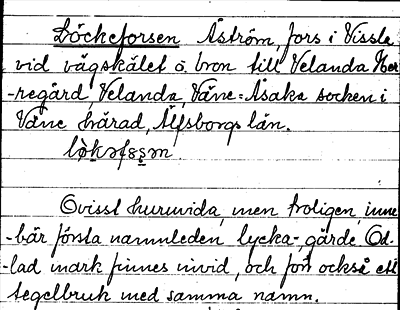 Löckeforsen Åström, fors i Vissla
vid vägskälet o. bron till Velanda Her
-regård, Velanda, Väne-Åsaka socken i
Väne härad, Älfsborgs län.
lòkəfɔsən
Ovisst huruvida, men troligen, inne
-bär första namnleden lycka-, gärde. Od-
-lad mark finnes invid, och förr också ett
tegelbruk med samma namn.